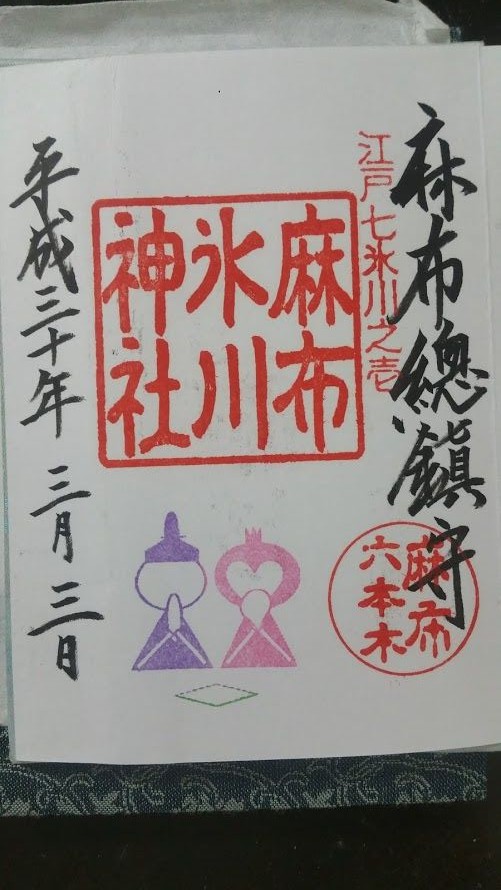 麻布總鎮守
江戸七氷川之壱
麻布
氷川
神社
麻布
六本木
平成三十年 三月 三日